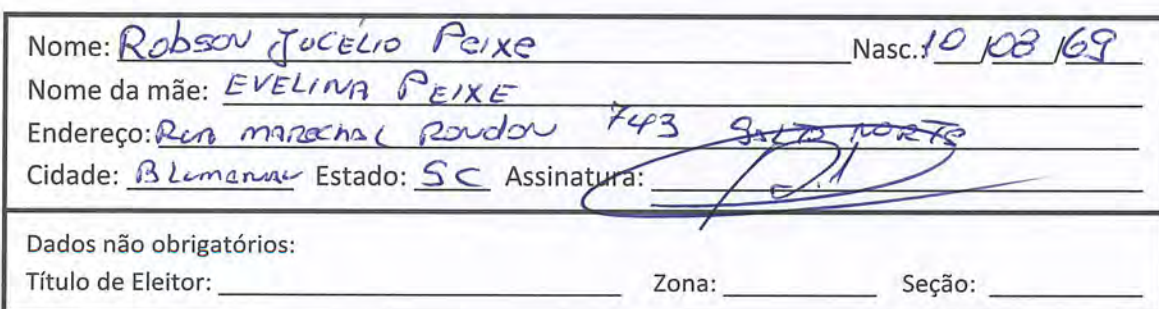 Nome: Robson Jocélio Peixe Nasc.: 10/08/69
Nome da mãe: EVELINA PEIXE
Endereço: Rua MARECHAL RONDON 743 SALTO NORTE
Cidade: Blumenau Estado: SC Assinatura:
Dados não obrigatórios:
Título de Eleitor: Zona: Seção: